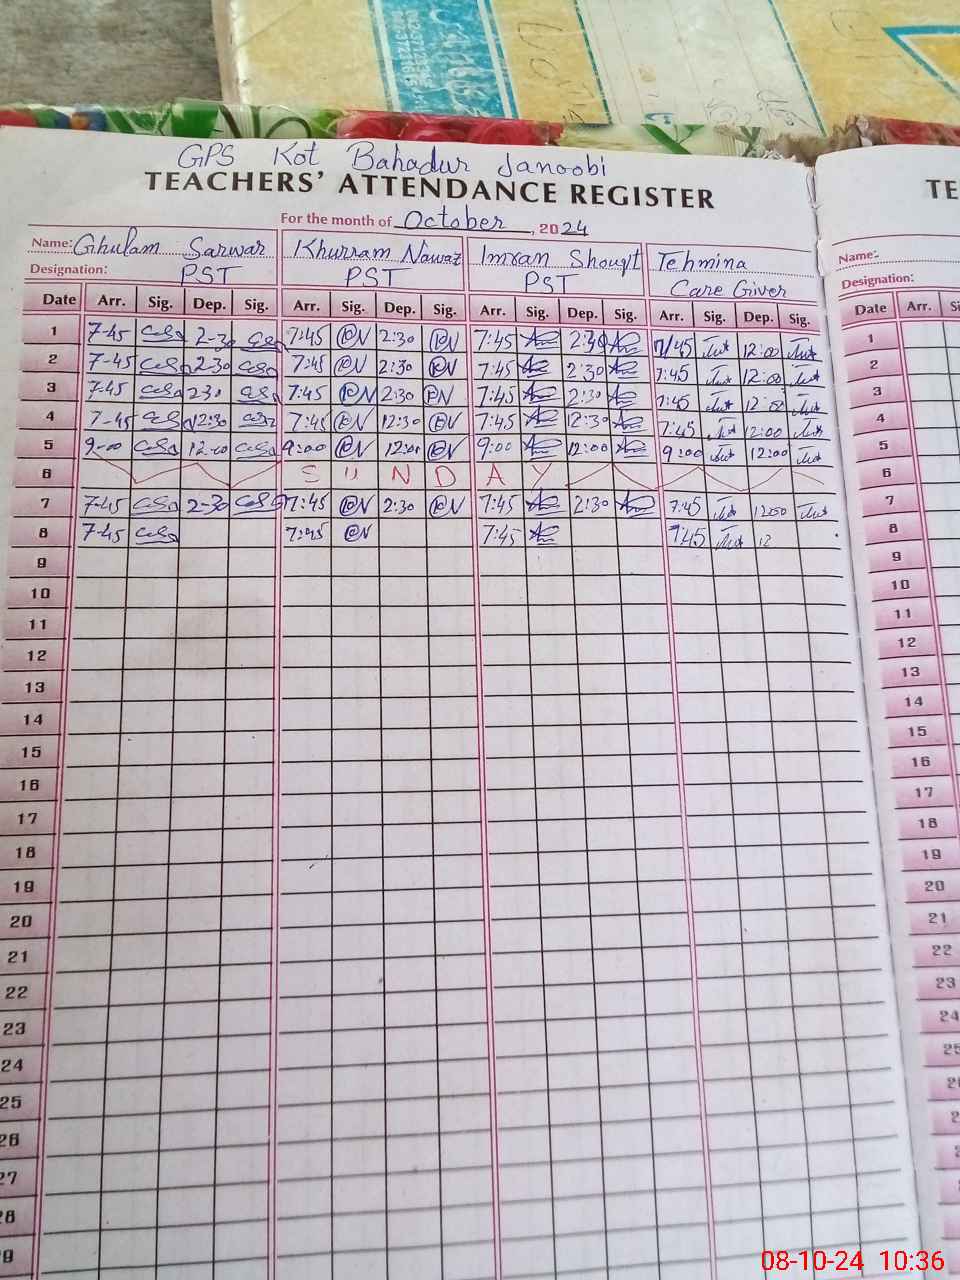 GPS Kot Bahadur Janoobi
TEACHERS' ATTENDANCE REGISTER
For the month of October, 2024
Name: Ghulam Sarwar Khurram Nawaz Imran Shouqt Tehmina
Designation: PST PST PST Care Giver
Date Arr. Sig. Dep. Sig. Arr. Sig. Dep. Sig. Arr. Sig. Dep. Sig. Arr. Sig. Dep. Sig.
1 7-45 2-30 7:45 2:30 7:45 2:30 7/45 12:00
2 7-45 2-30 7:45 2:30 7:45 2:30 7:45 12:00
3 7-45 230 7:45 2:30 7:45 2:30 7:45 12:00
4 7-45 12:30 7:45 12:30 7:45 12:30 7:45 12:00
5 9-00 12-00 9:00 12:00 9:00 12:00 9:00 12:00
6 SUNDAY
7 7-45 2-30 7:45 2:30 7:45 2:30 7:45
8 7-45 7:45 7:45 7:45 12
9
10
11
12
13
14
15
16
17
18
19
20
21
22
23
24
25
26
27
28
29
TE
Name:
Designation:
Date Arr.
1
2
3
4
5
6
7
8
9
10
11
12
13
14
15
16
17
18
19
20
21
22
23
24
25
08-10-24 10:36